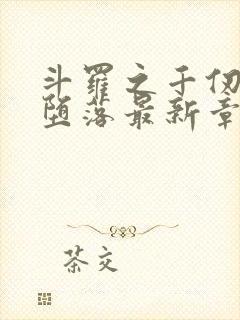 斗罗之千仞
堕落最新章
茶交